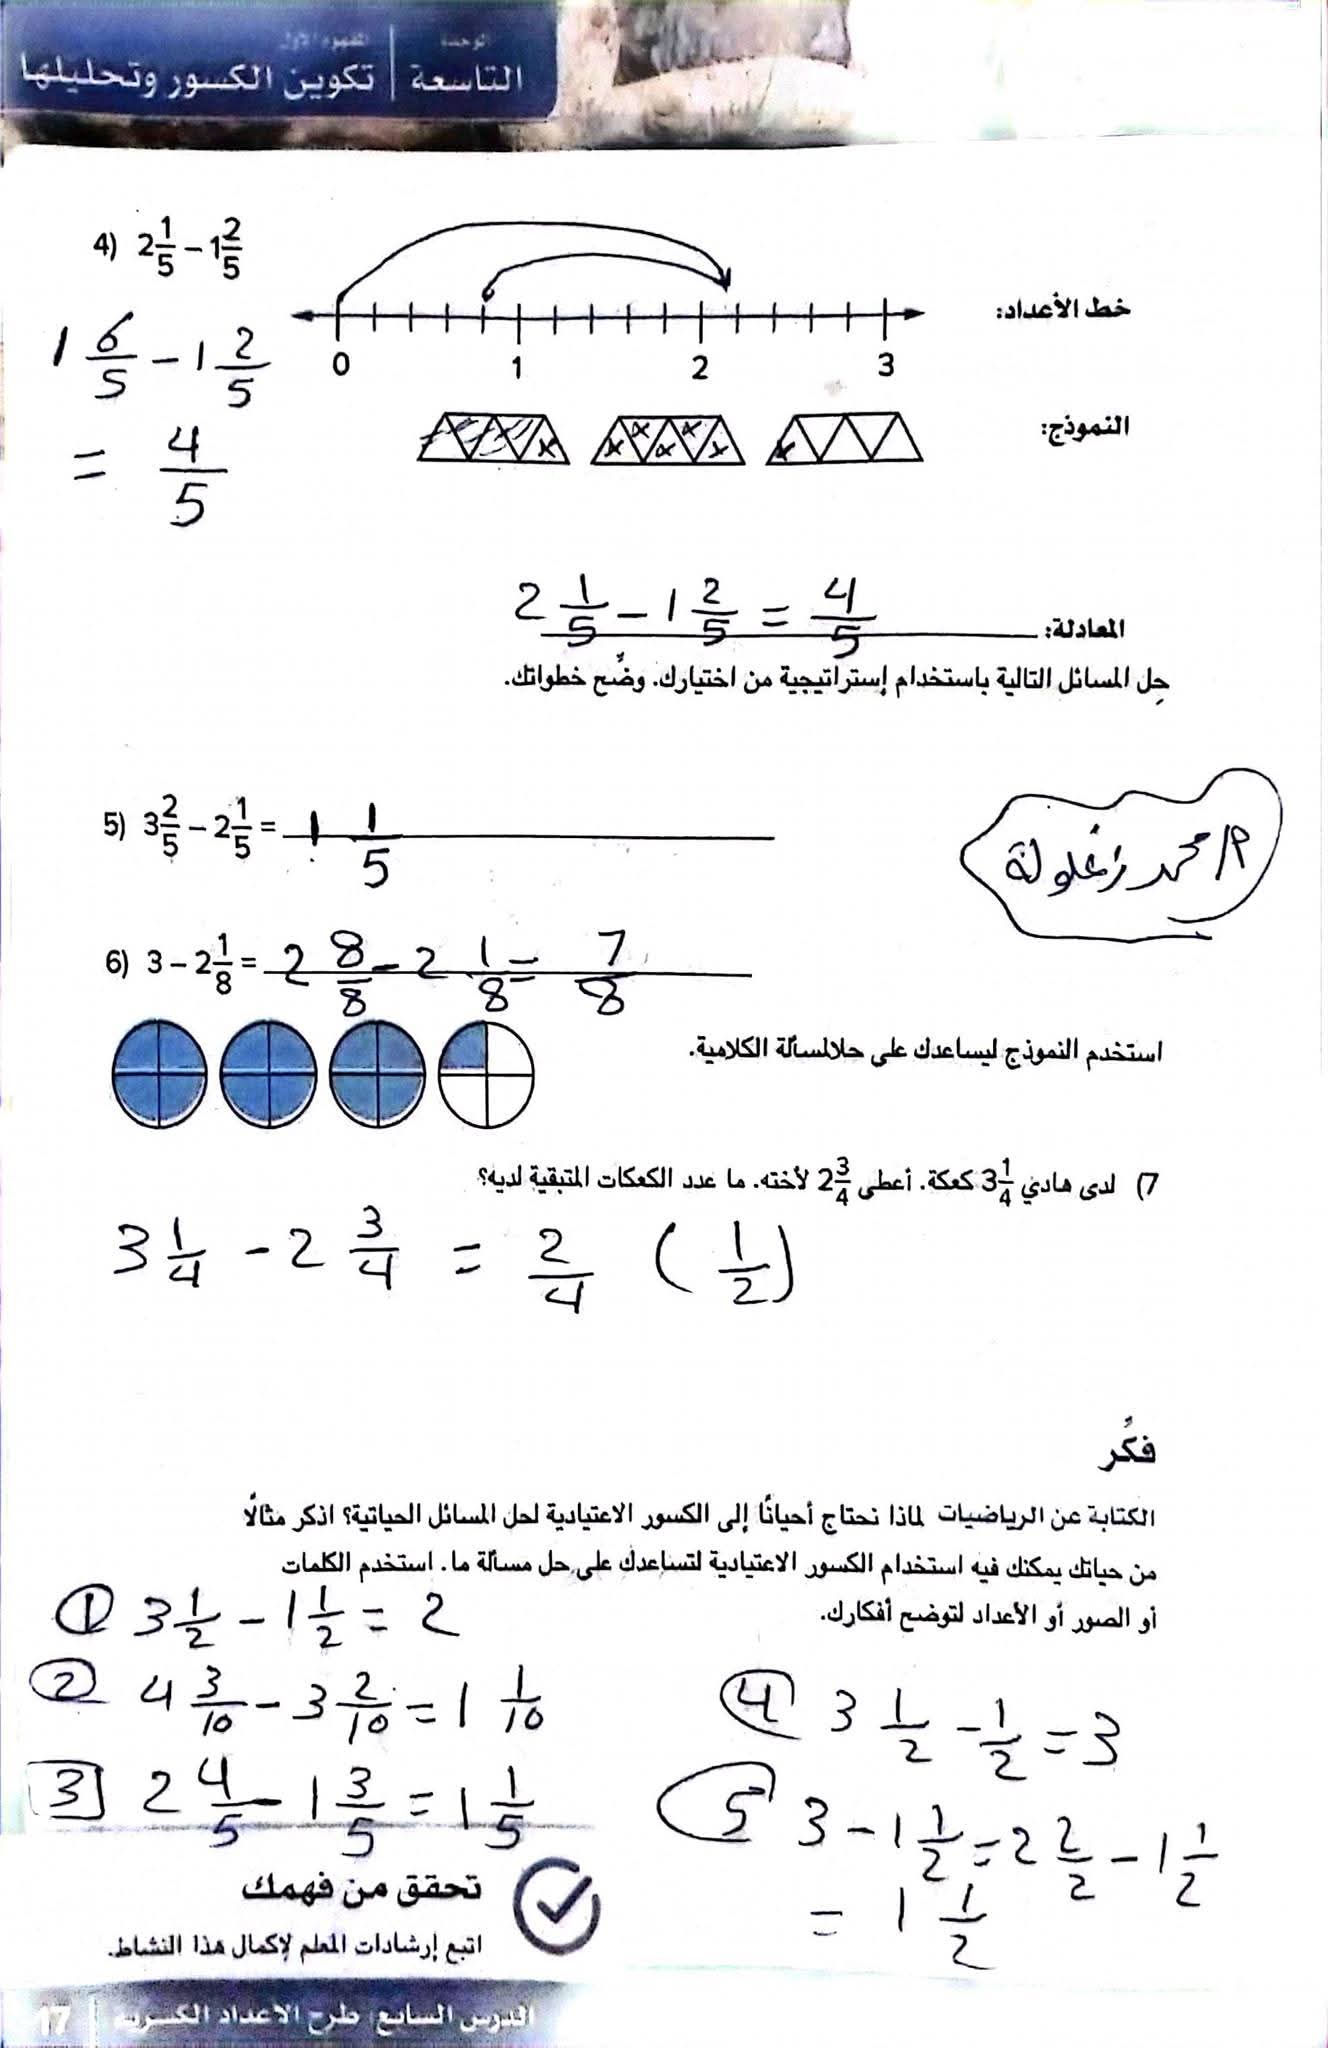 الوحدة
المفهوم الأول
التاسعة | تكوين الكسور وتحليلها
4) 2 1/5 – 1 2/5
1 6/5 – 1 2/5
= 4/5
خط الأعداد:
0 1 2 3
النموذج:
المعادلة: 2 1/5 – 1 2/5 = 4/5
حِل المسائل التالية باستخدام إستراتيجية من اختيارك. وضِّح خطواتك.
5) 3 2/5 – 2 1/5 = 1 1/5
م/محمد زغلولة
6) 3 – 2 1/8 = 2 8/8 – 2 1/8 = 7/8
استخدم النموذج ليساعدك على حلالمسألة الكلامية.
7) لدى هادي 3 1/4 كعكة. أعطى 2 3/4 لأخته. ما عدد الكعكات المتبقية لديه؟
3 1/4 – 2 3/4 = 2/4 (1/2)
فكِّر
الكتابة عن الرياضيات لماذا نحتاج أحيانًا إلى الكسور الاعتيادية لحل المسائل الحياتية؟ اذكر مثالًا
من حياتك يمكنك فيه استخدام الكسور الاعتيادية لتساعدك على حل مسألة ما. استخدم الكلمات
أو الصور أو الأعداد لتوضح أفكارك.
1 3 1/2 – 1 1/2 = 2
2 4 3/10 – 3 2/10 = 1 1/10
3 2 4/5 – 1 3/5 = 1 1/5
4 3 1/2 – 1/2 = 3
5 3 – 1 1/2 = 2 2/2 – 1 1/2
= 1 1/2
تحقق من فهمك
اتبع إرشادات المعلم لإكمال هذا النشاط.
الدرس السابع: طرح الأعداد الكسرية | 17